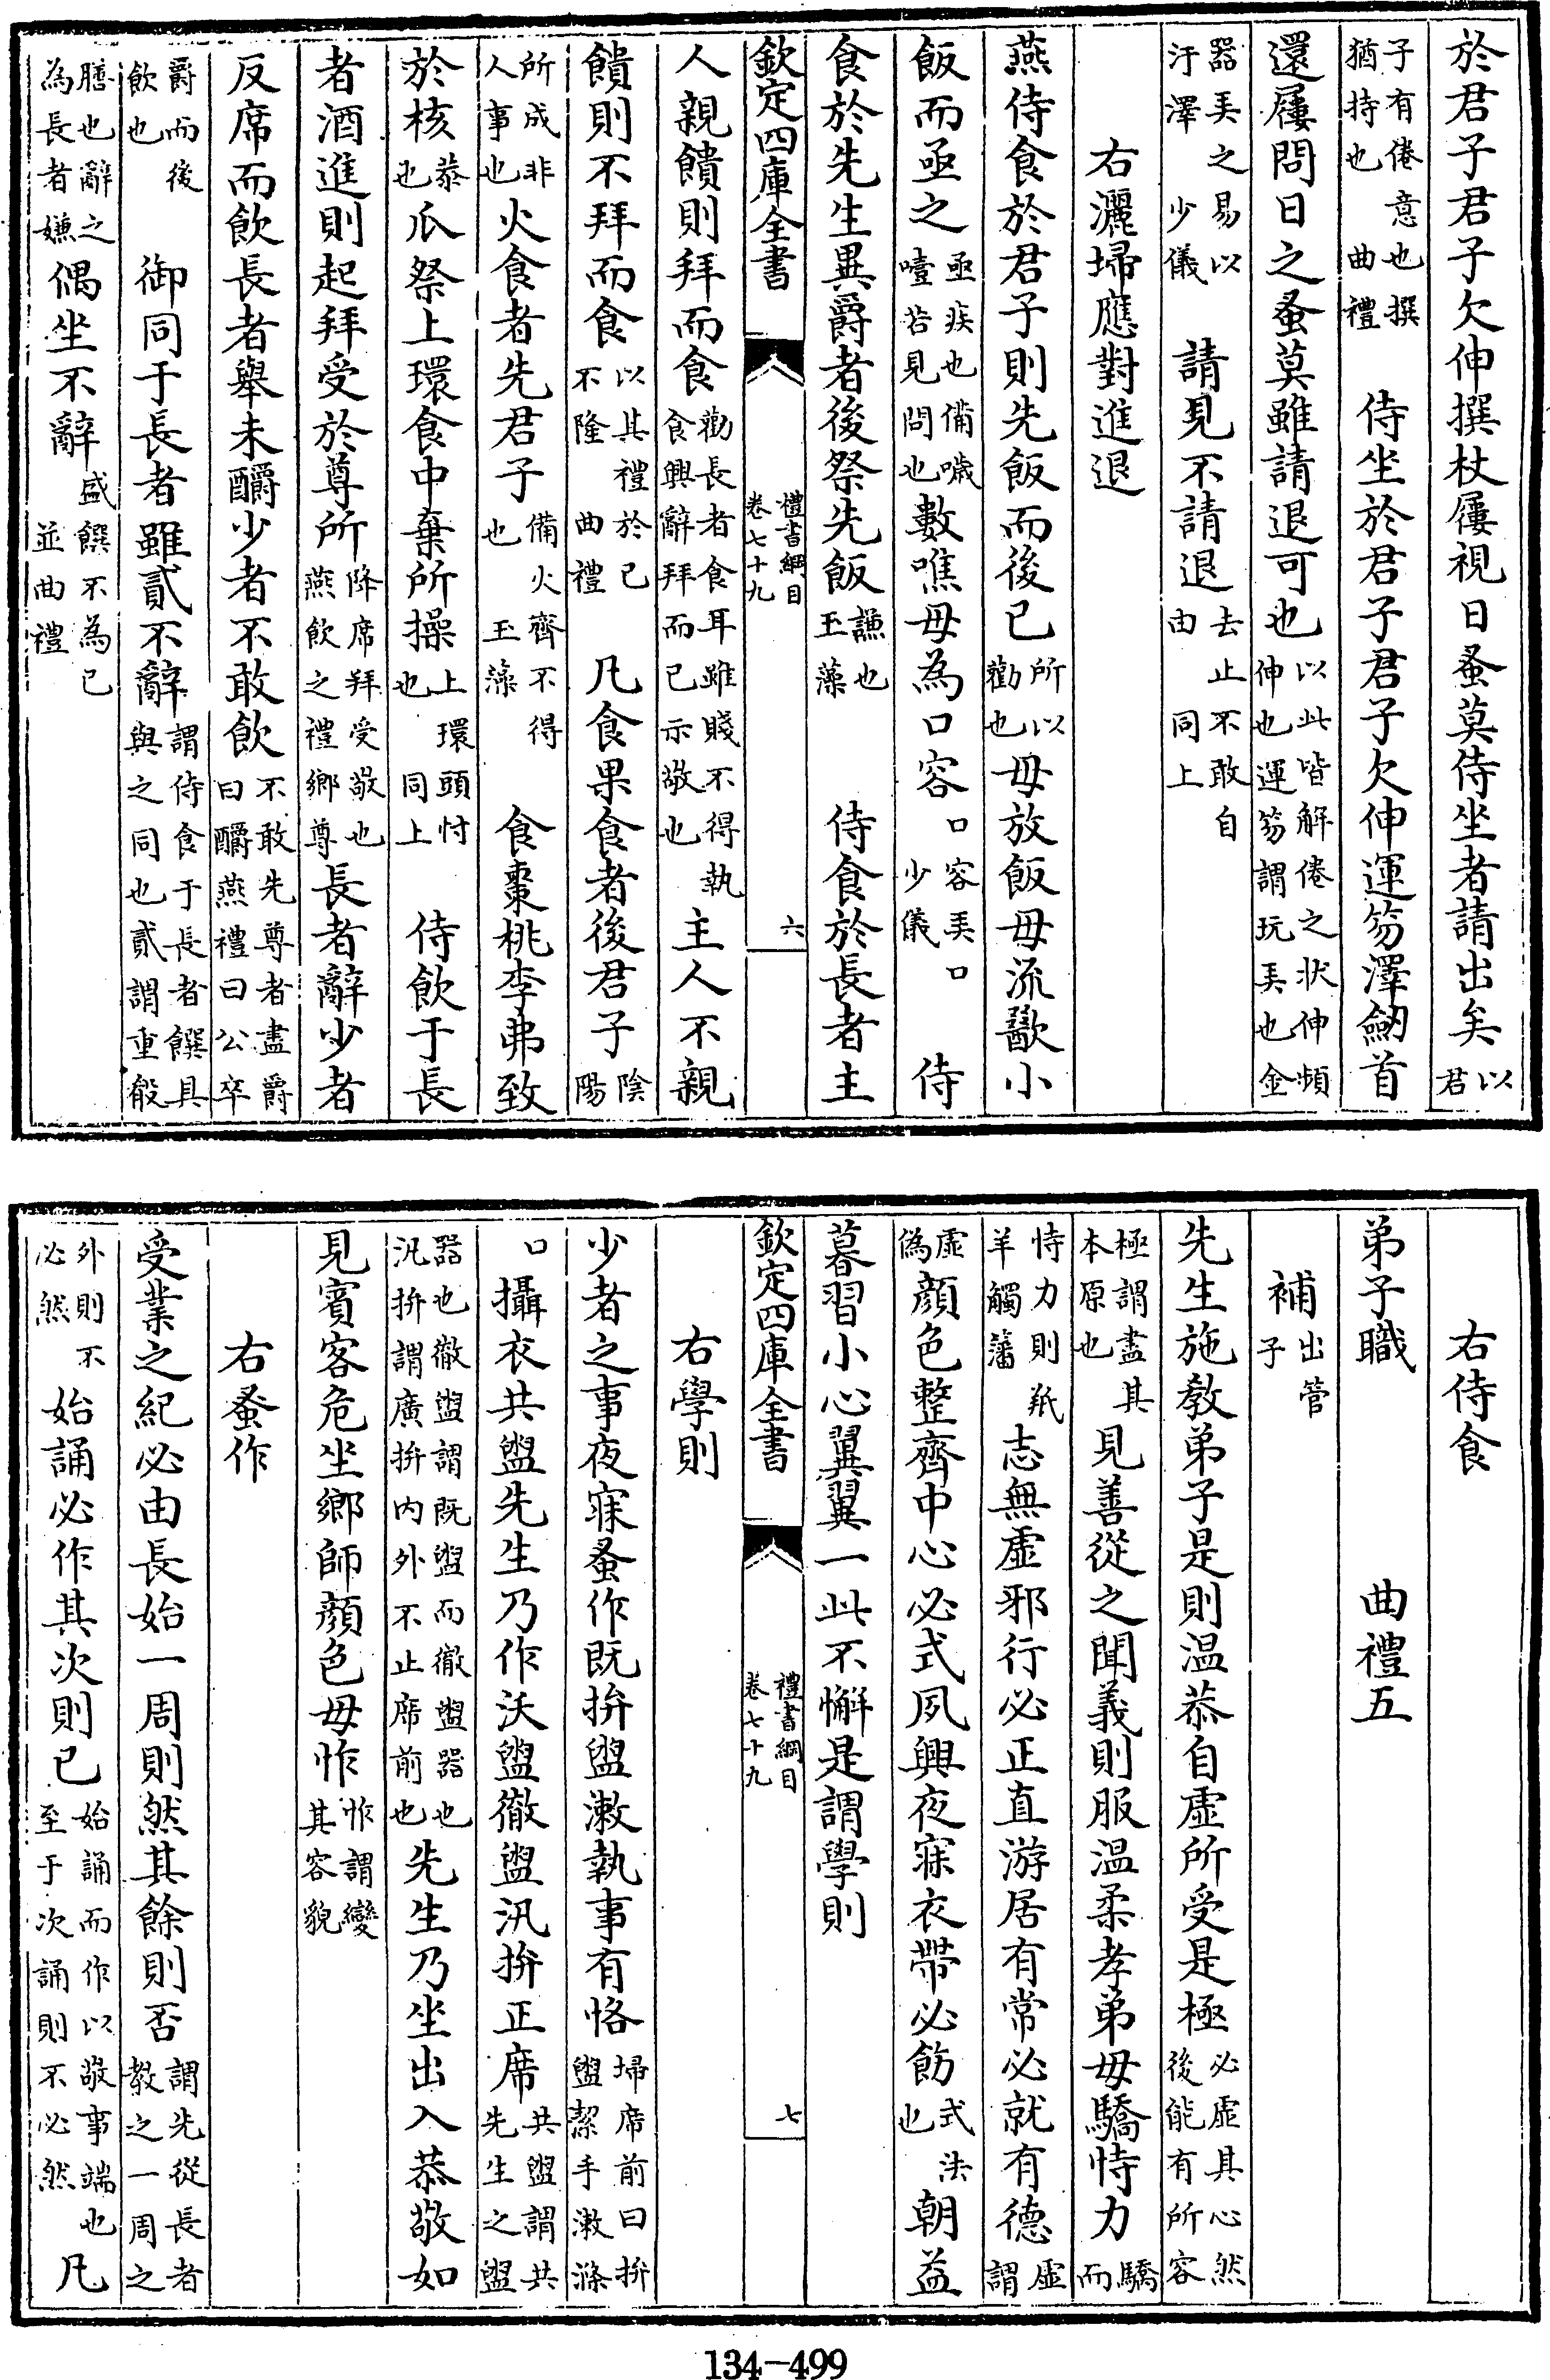 於君子君子欠伸撰杖屨視日蚤莫侍坐者請出矣以君
子有倦意也撰猶持也曲禮 侍坐於君子君子欠伸運笏澤劒首
還屨問日之蚤莫雖請退可也以此皆解倦之状伸頻伸也運笏謂玩弄也金
器弄之易以汙澤少儀 請見不請退去止不敢自由同上
右灑埽應對進退
燕侍食於君子則先飯而後已所以勸也毋放飯毋流歠小
飯而亟之亟疾也備噦噎若見問也數噍毋為口容口容弄口少儀 侍
食於先生異爵者後祭先飯謙也玉藻 侍食於長者主
欽定四庫全書 禮書綱目卷七十九 六
人親饋則拜而食勸長者食耳雖賤不得執食興辭拜而已示敬也主人不親
饋則不拜而食以其禮於己不隆曲禮 凡食果食者後君子陰陽
所成非人事也火食者先君子備火齊不得也玉藻 食棗桃李弗致
於核恭也瓜祭上環食中棄所操上環頭忖也同上 侍飲于長
者酒進則起拜受於尊所降席拜受敬也燕飲之禮鄉尊長者辭少者
反席而飲長者舉未釂少者不敢飲不敢先尊者盡爵曰釂燕禮曰公卒
爵而後飲也 御同于長者雖貳不辭謂侍食于長者饌具與之同也貳謂重殽
膳也辭之為長者嫌偶坐不辭盛饌不為已並曲禮
右侍食
弟子職 曲禮五
補出管子
先生施敎弟子是則温恭自虛所受是極必虛其心然後能有所容
極謂盡其本原也見善從之聞義則服温柔孝弟毋驕恃力驕而
恃力則羝羊觸藩志無虛邪行必正直游居有常必就有德虛謂
虛偽顔色整齊中心必式夙興夜寐衣帶必飭式法也朝益
暮習小心翼翼一此不懈是謂學則
欽定四庫全書 禮書綱目卷七十九 七
右學則
少者之事夜寐蚤作既拚盥潄執事有恪埽席前曰拚盥潔手潄滌
口攝衣共盥先生乃作沃盥徹盥汎拚正席共盥謂共先生之盥
器也徹盥謂既盥而徹盥器也汎拚謂廣拚内外不止席前也先生乃坐出入恭敬如
見賓客危坐鄉師顔色毋怍怍謂變其容貌
右蚤作
受業之紀必由長始一周則然其餘則否謂先從長者教之一周之
外則不必然始誦必作其次則已始誦而作以敬事端也至于次誦則不必然凡
134-499